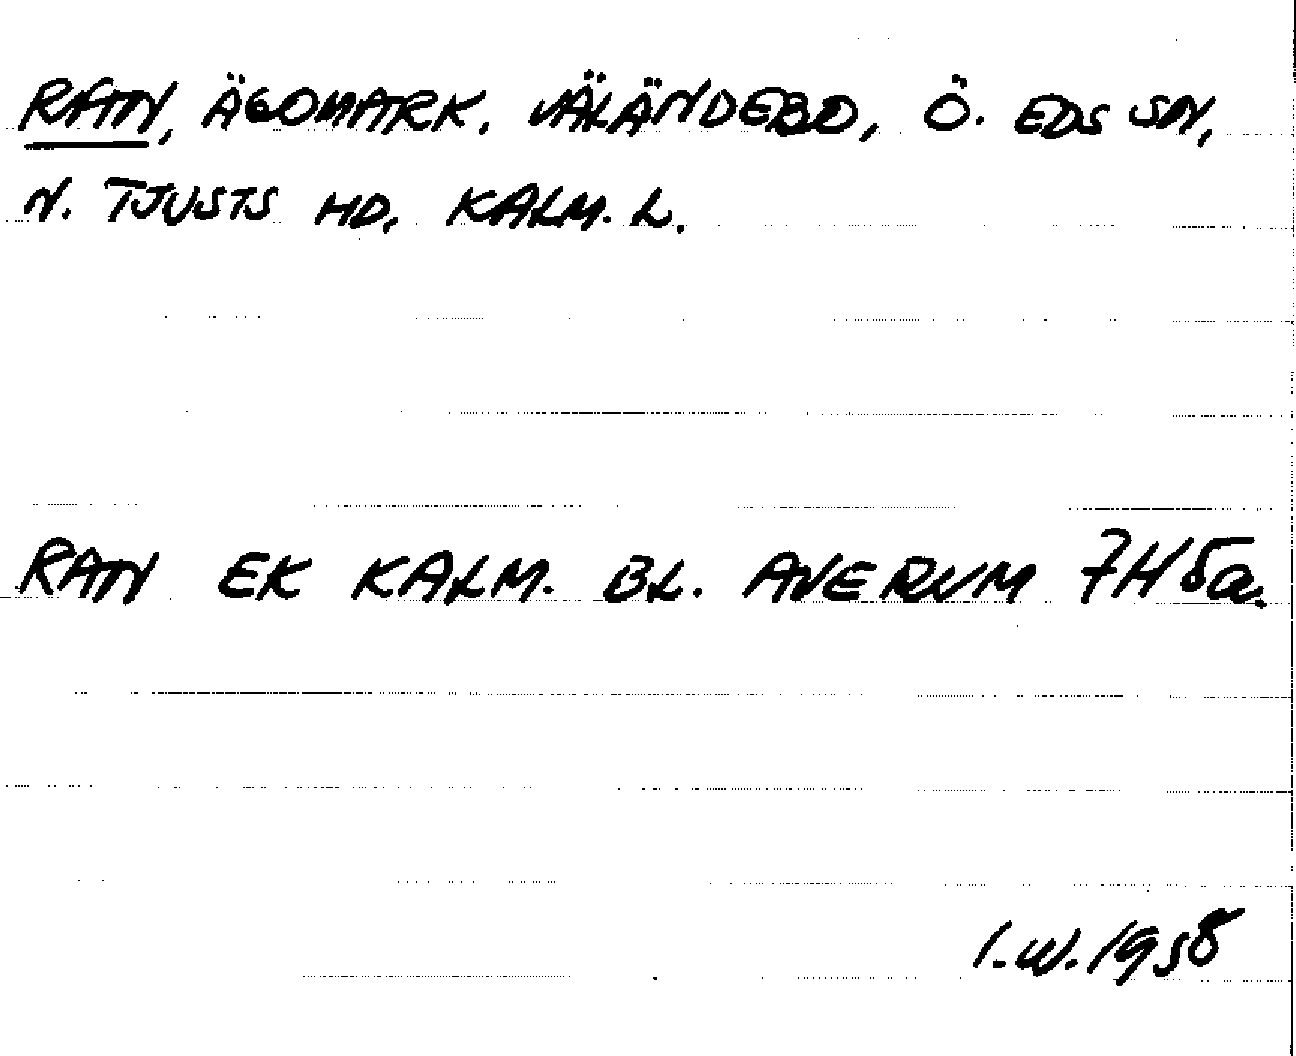 RATN, ÄGOMARK. VÄLÄNDEBO, Ö. EDS SN,
N. TJUSTS HD, KALM. L.
RATN EK KALM. BL. AVERUM 7H5a.
I.W. 1958